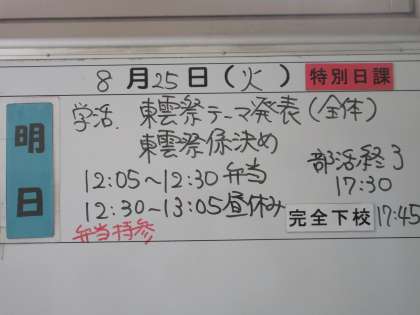 8月25日(火) 特別日課
明日
学活. 東雲祭テーマ発表(全体)
東雲祭係決め
部活終了
12:05~12:30弁当
17:30
12:30~13:05昼休み
完全下校 17:45
弁当持参